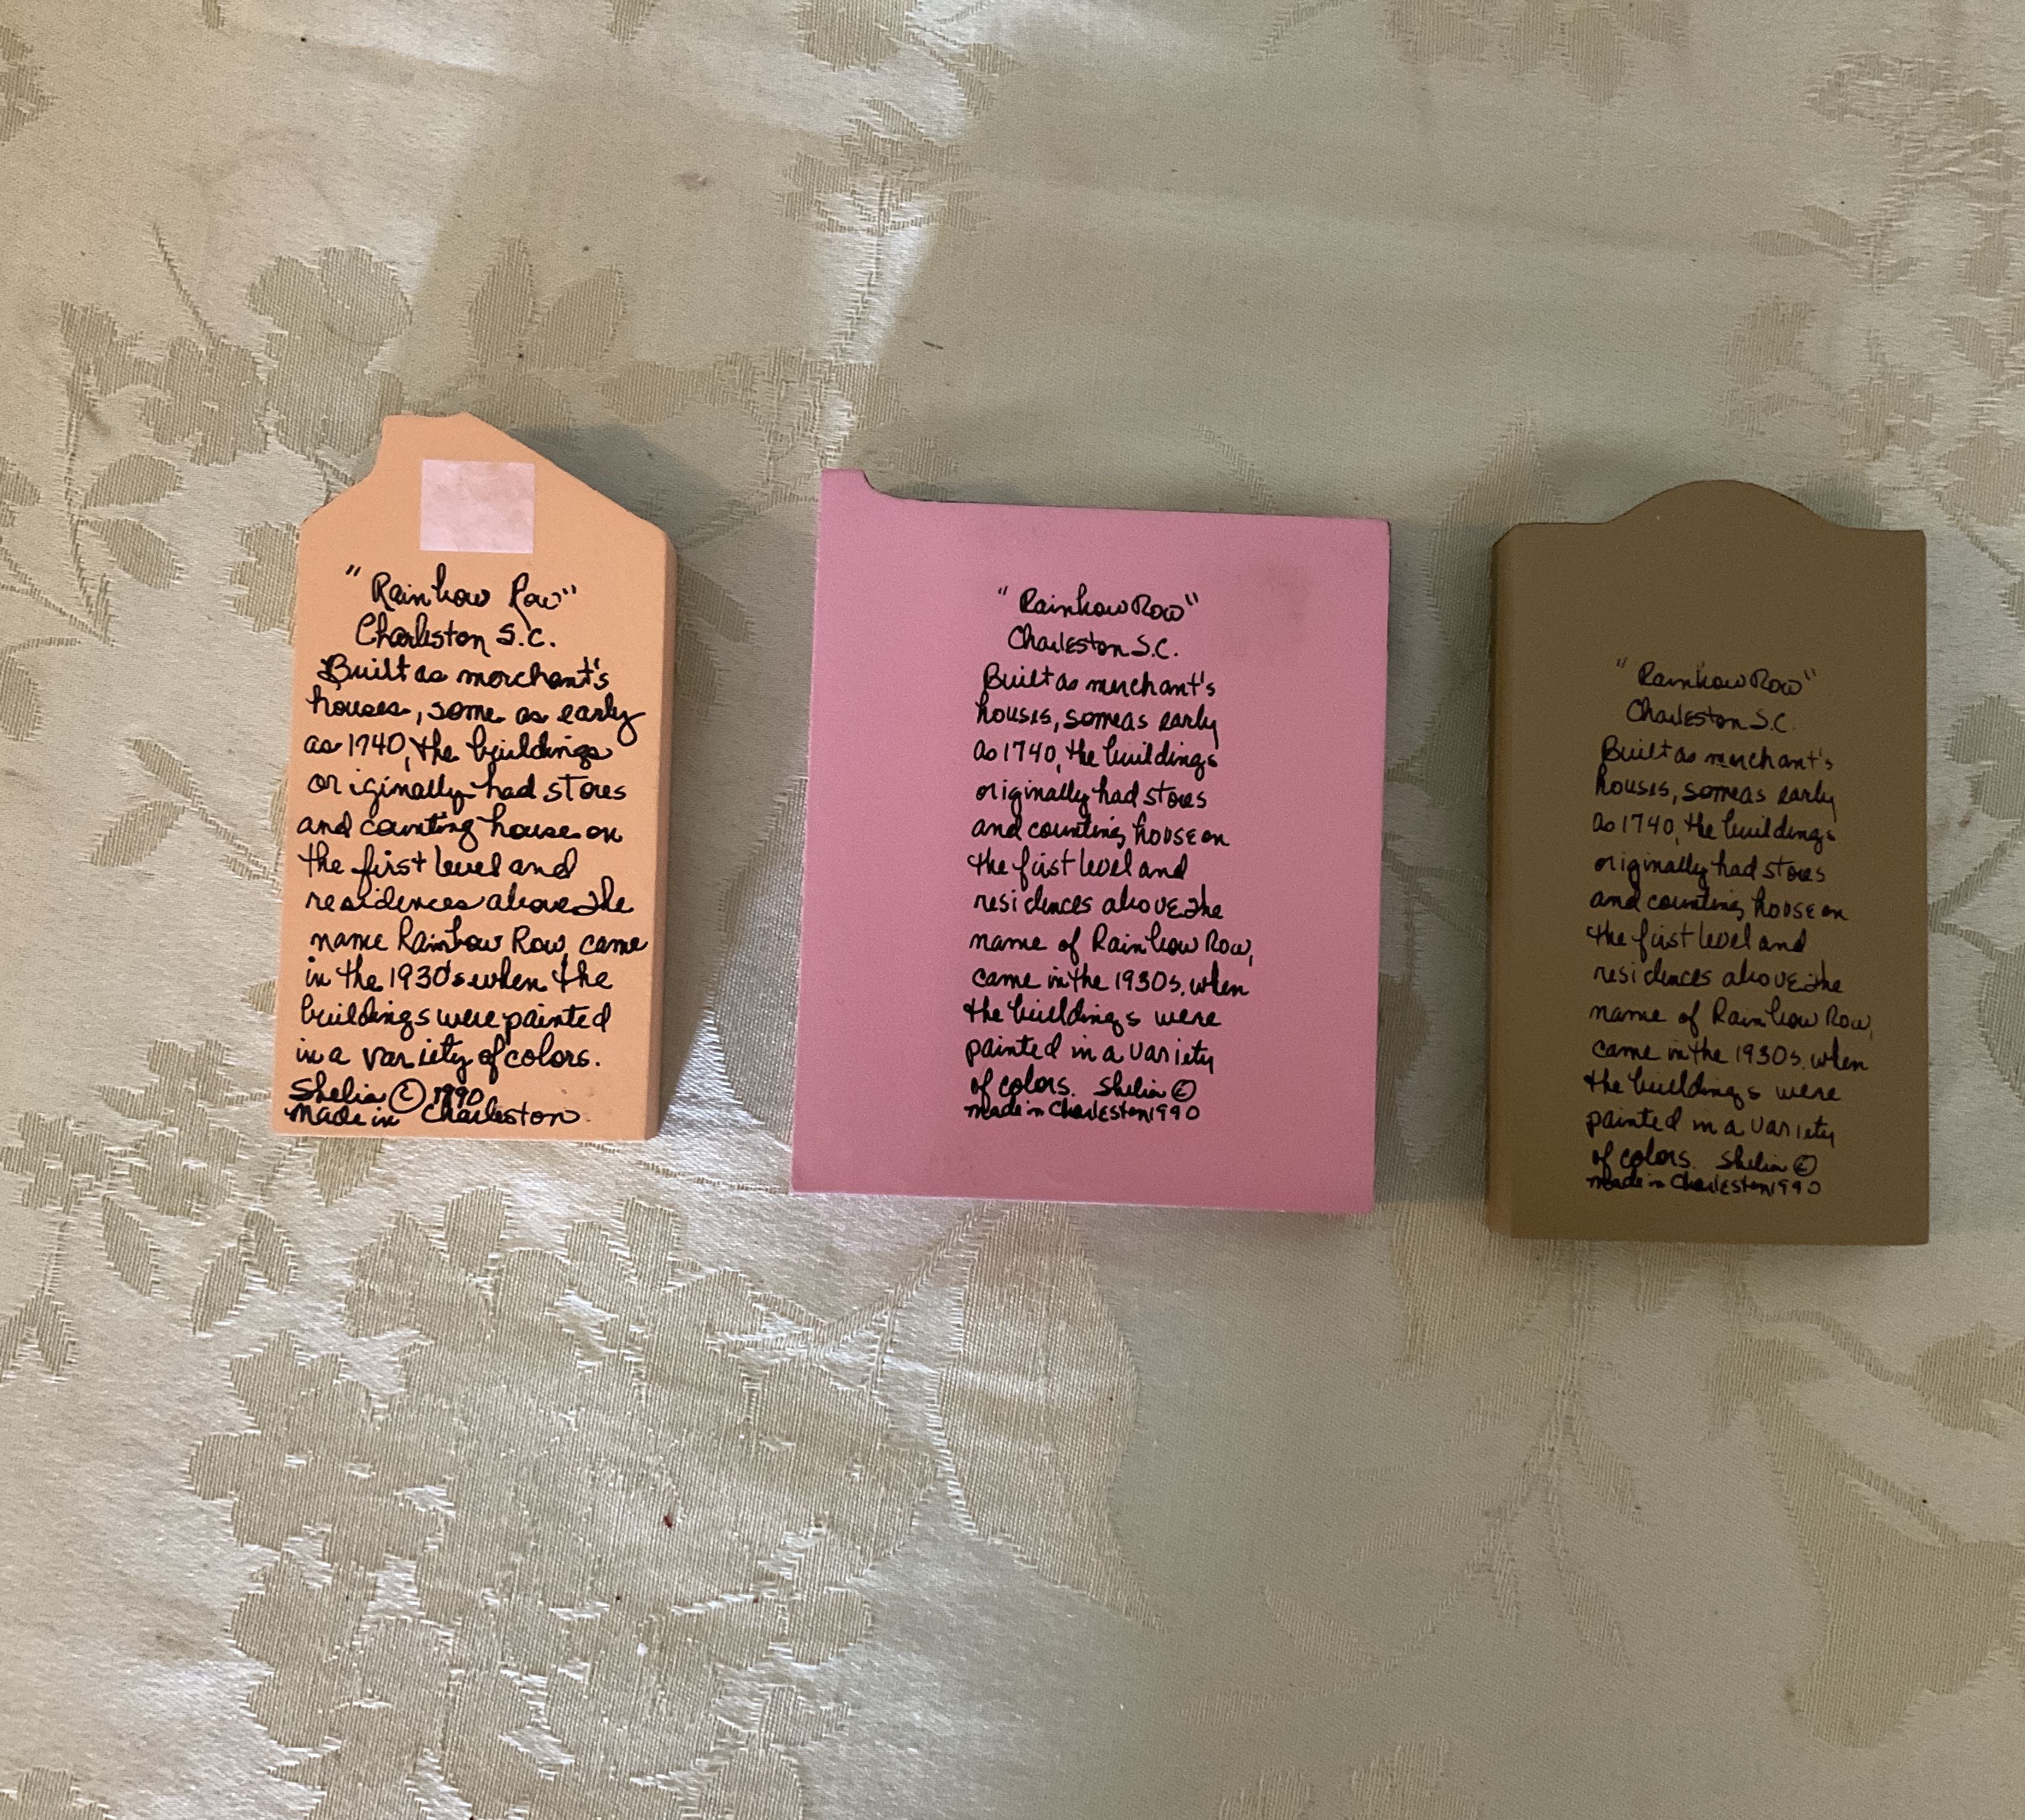 "Rainbow Row"
Charleston S.C.
Built as merchant's
houses, some as early
as 1740, the buildings
originally had stores
and counting house on
the first level and
residences above the
name Rainbow Row, came
in the 1930's when the
buildings were painted
in a variety of colors.
Shelia © 1990
made in Charleston.
"Rainbow Row"
Charleston S.C.
Built as merchant's
houses, some as early
as 1740, the buildings
originally had stores
and counting house on
the first level and
residences above the
name of Rainbow Row,
came in the 1930s, when
the buildings were
painted in a variety
of colors. Shelia ©
made in Charleston 1990
"Rainbow Row"
Charleston S.C.
Built as merchant's
houses, some as early
as 1740, the buildings
originally had stores
and counting house on
the first level and
residences above the
name of Rainbow Row,
came in the 1930s, when
the buildings were
painted in a variety
of colors. Shelia ©
made in Charleston 1990